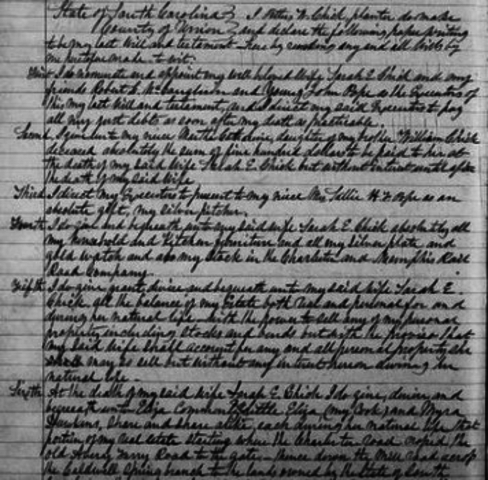 State of South Carolina } I Pettus W. Chick, planter do make
County of Union } and declare the following paper writing
to be my last Will and testament - here by revoking any and all Wills by
me heretofore made - to wit:
First I do nominate and appoint my well beloved Wife Sarah E Chick and my
friends Robert L. McCaughrin and Young John Pope as the Executors of
this my last will and testament, and I direct my said Executors to pay
all my just debts as soon after my death as practicable.
Second I give unto my niece daughter of my brother William Chick
deceased absolutely the sum of five hundred dollars to be paid to her at
the death of my said Wife Sarah E. Chick but without interest until after
the death of my said Wife.
Third I direct my Executors to present to my niece Mrs Sallie H. F. Pope as an
absolute gift, my silver pitcher.
Fourth I do give and bequeath unto my said wife Sarah E. Chick absolutely all
my household and Kitchen furniture and all my silver plate and
gold watch and also my stock in the Charleston and Memphis Rail
Road Company.
Fifth I do give grant, devise and bequeath unto my said wife Sarah E
Chick all the balance of my Estate both real and personal for and
during her natural life - with the power to sell any of my personal
property including stocks and bonds but with the proviso that
my said wife shall account for any and all personal property she
may so sell but without any interest thereon during her
natural life.
Sixth At the death of my said wife Sarah E. Chick I do give, devise and
bequeath unto Eliza commonly Little Eliza (my Cook) and Myra
Hawkins, share and share alike, each during her natural life that
portion of my real estate starting where the Charleston Road crosses the
old Ferry Road to the gate - thence down the Mill road across
the Caldwell Spring branch to the lands owned by the State of South